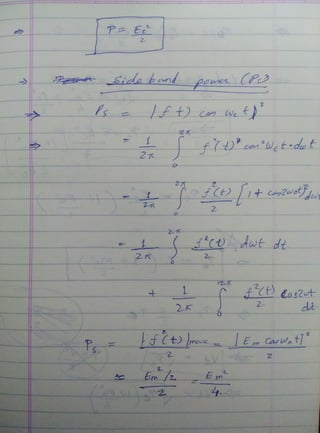 ⇒ P = Ec²/2
→ Side band power (Ps)
⇒ Ps = |f t) cos wc t)|²
⇒ = 1/2π ∫₀^2π f²(t)² cos² wc t · dwt
= 1/2π ∫₀^2π f²(t)/2 [1 + cos2wct] dwt
= 1/2π ∫₀^2π f²(t)/2 dwt dt
+ 1/2π ∫₀^2π f²(t)/2 cos2wt dt
Ps = |f²(t)|max/2 = |Em cos wn t|²/2
= Em²/2/2 = Em²/4